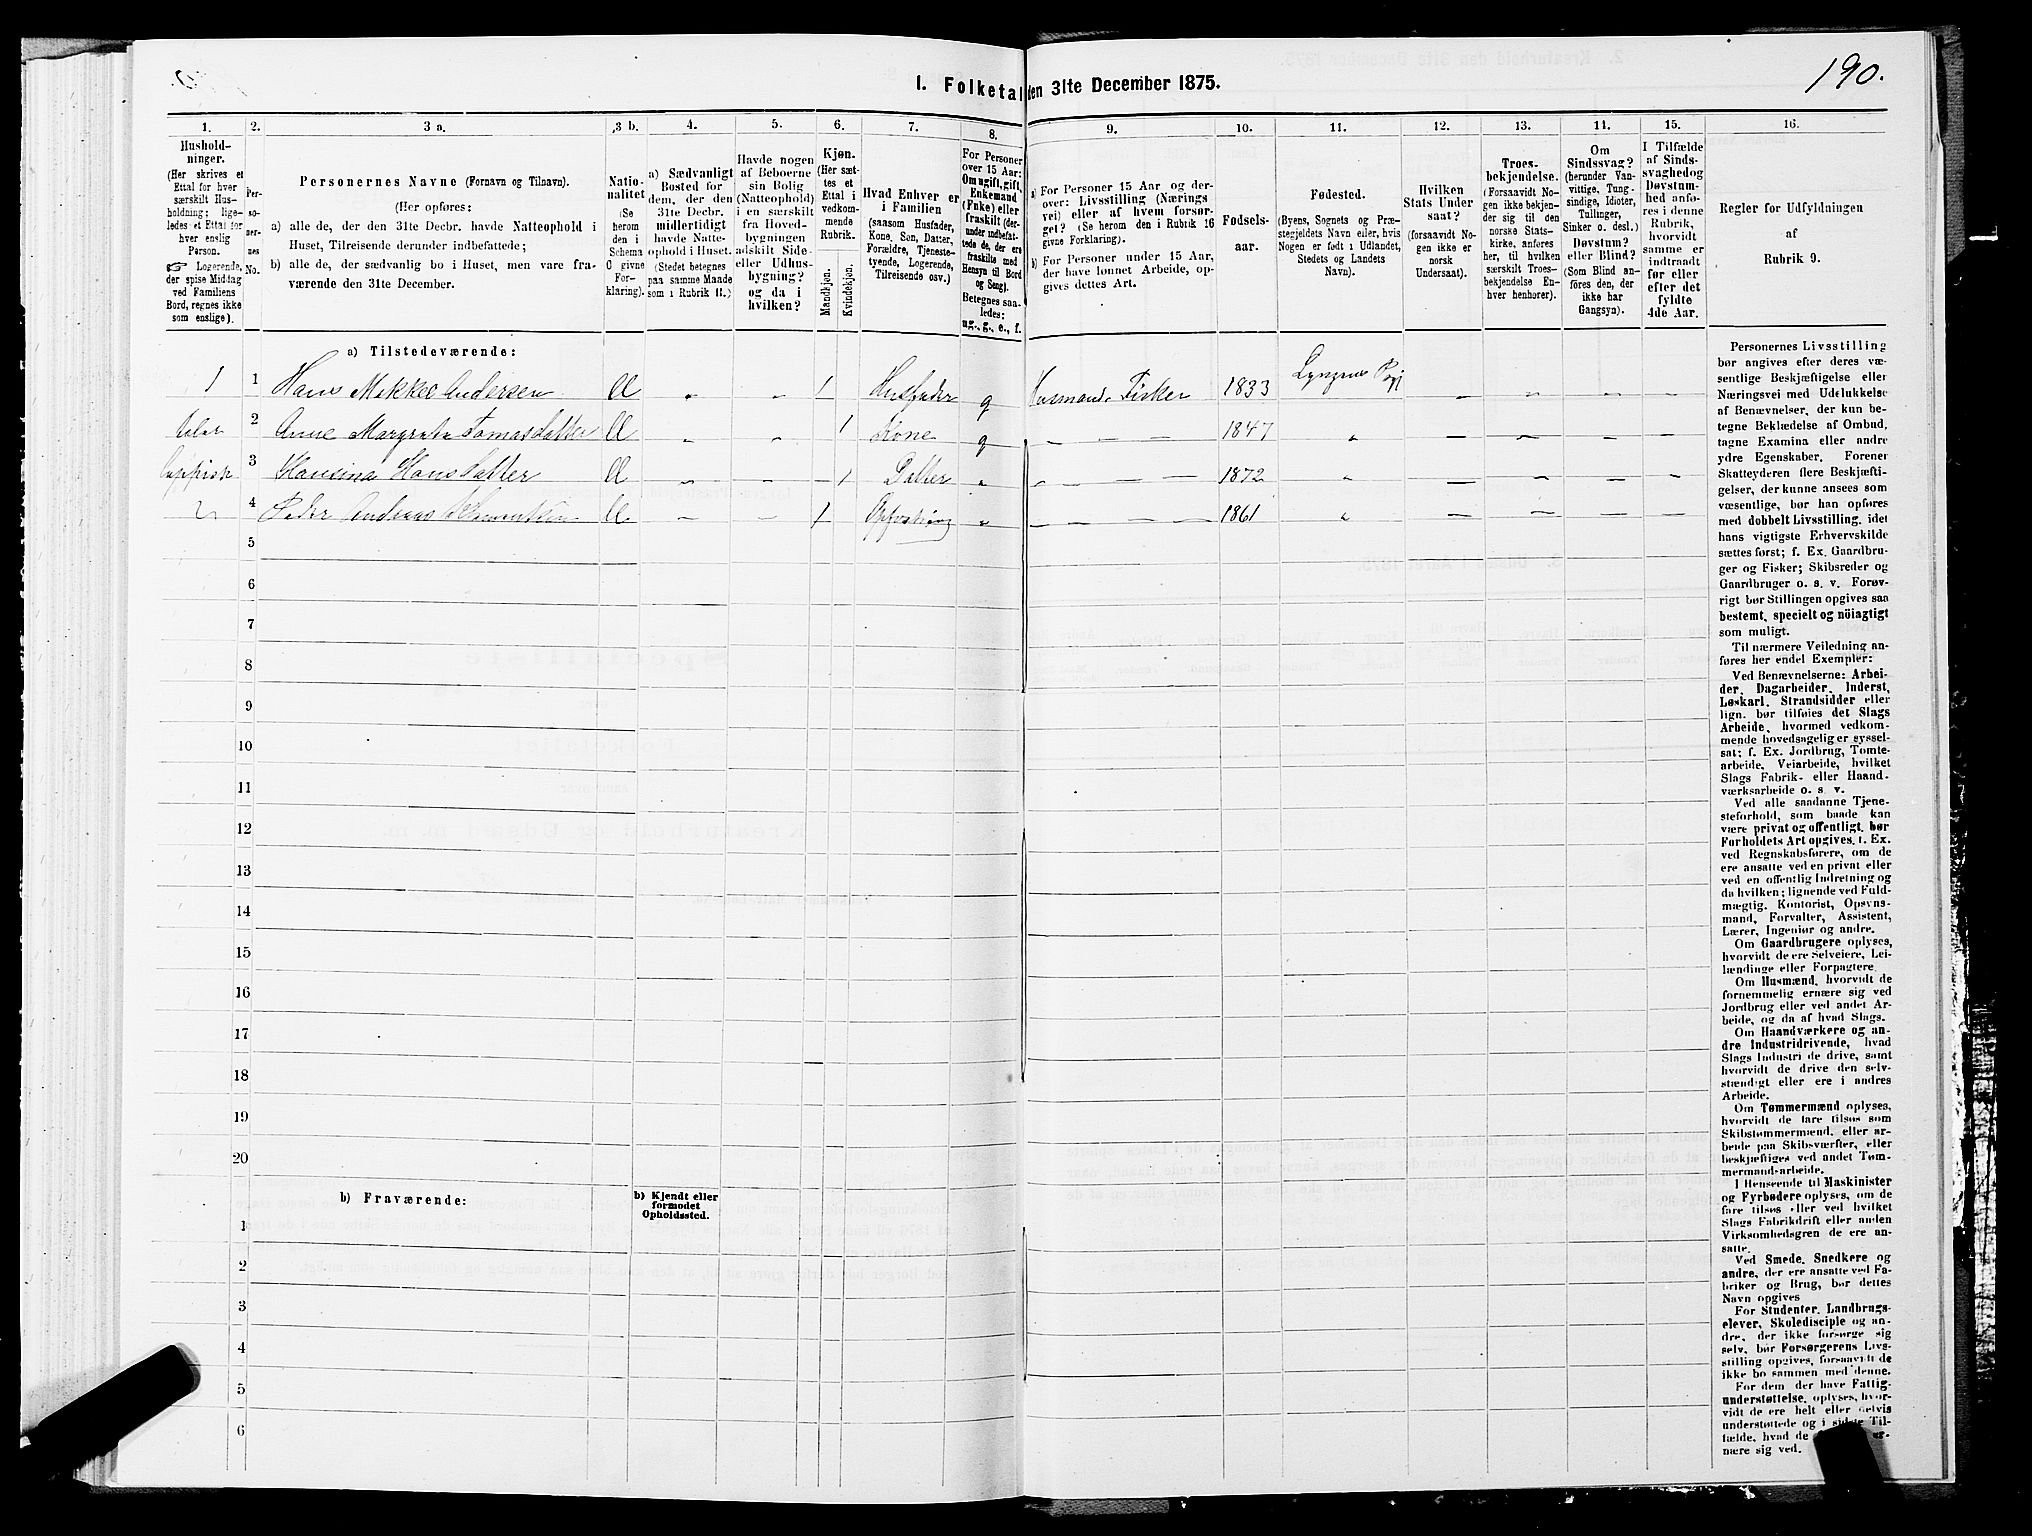 190.
I. Folketal den 31te December 1875.
1. 2. 3 a. 3 b. 4. 5. 6. 7. 8. 9. 10. 11. 12. 13. 14. 15. 16.
Hushold-
ninger.
(Her skrives et
Ettal for hver
særskilt Hus-
holdning; lige-
ledes et Ettal for
hver enslig
Person.
☞ Logerende,
der spise Middag
ved Familiens
Bord, regnes ikke
som enslige).
Per-
so-
ner-
nes
No.
Personernes Navne (Fornavn og Tilnavn).
(Her opføres:
a) alle de, der den 31te Decbr. havde Natteophold i
Huset, Tilreisende derunder indbefattede;
b) alle de, der sædvanlig bo i Huset, men vare fra-
værende den 31te December.
Natio-
nalitet
(Se
herom
den i
Schema
O givne
For-
klaring).
a) Sædvanligt
Bosted for
dem, der den
31te Decbr.
midlertidigt
havde Natte-
ophold i Huset.
(Stedet betegnes
paa samme Maade
som i Rubrik 11.)
Havde nogen
af Beboerne
sin Bolig
(Natteophold)
i en særskilt
fra Hoved-
bygningen
adskilt Side-
eller Udhus-
bygning?
og da i
hvilken?
Kjøn.
(Her sæt-
tes et
Ettal i
vedkom-
mende
Rubrik.
Mandkjøn.
Kvindekjøn.
Hvad Enhver er
i Familien
(saasom Husfader,
Kone, Søn, Datter,
Forældre, Tjeneste-
tyende, Logerende,
Tilreisende osv.)
For Personer
over 15 Aar:
Om ugift, gift,
Enkemand
(Enke) eller
fraskilt (der-
under indbefat-
tede de, der ere
fraskilte med
Hensyn til Bord
og Seng).
Betegnes saa-
ledes:
ug., g., e., f.
a) For Personer 15 Aar og der-
over: Livsstilling (Nærings
vei) eller af hvem forsør-
get? (Se herom den i Rubrik 16
givne Forklaring).
b) For Personer under 15 Aar,
der have lønnet Arbeide, op-
gives dettes Art.
Fødsels-
aar.
Fødested.
(Byens, Sognets og Præ-
stegjeldets Navn eller, hvis
Nogen er født i Udlandet,
Stedets og Landets
Navn).
Hvilken
Stats Under
saat?
(forsaavidt No-
gen ikke er
norsk
Undersaat).
Troes-
bekjendelse.
(Forsaavidt No-
gen ikke bekjen-
der sig til den
norske Stats-
kirke, anføres
her, til hvilken
særskilt Troes-
bekjendelse En-
hver henhører).
Om
Sindssvag?
(herunder Van-
vittige, Tung-
sindige, Idioter,
Tullinger,
Sinker o. desl.)
Døvstum?
eller Blind?
(Som Blind an-
føres den, der
ikke har
Gangsyn).
I Tilfælde
af Sinds-
svaghed og
Døvstum-
hed anfø-
res i denne
Rubrik,
hvorvidt
samme er
indtraadt
før eller
efter det
fyldte
4de Aar.
Regler for Udfyldningen
af
Rubrik 9.
a) Tilstedeværende:
1 1 Hans Mikkel Andersen Husfader g Husmand, Fisker 1833 Lyngens Pgj
2 Anne Margreta Tomasdatter 1 Kone g 1847 "
3 Hansina Hansdatter 1 Datter 1872 "
4 Peder Andreas 1 1861 "
5
6
7
8
9
10
11
12
13
14
15
16
17
18
19
20
b) Fraværende:
b) Kjendt eller
formodet
Opholdssted.
1
2
3
4
5
6
Personernes Livsstilling
bør angives efter deres væ-
sentlige Beskjæftigelse eller
Næringsvei med Udelukkelse
af Benævnelser, der kun be-
tegne Beklædelse af Ombud,
tagne Examina eller andre
ydre Egenskaber. Forener
Skatteyderen flere Beskjæfti-
gelser, der kunne ansees som
væsentlige, bør han opføres
med dobbelt Livsstilling, idet
hans vigtigste Erhvervskilde
sættes først; f. Ex. Gaardbru-
ger og Fisker; Skibsreder og
Gaardbruger o. s. v. Forøv-
rigt bør Stillingen opgives saa
bestemt, specielt og nöiagtigt
som muligt.
Til nærmere Veiledning an-
føres her endel Exempler:
Ved Benævnelserne: Arbei-
der, Dagarbeider, Inderst,
Løskarl, Strandsidder eller
lign. bør tilføies det Slags
Arbeide, hvormed vedkom-
mende hovedsagelig er syssel-
sat; f. Ex. Jordbrug, Tomte-
arbeide, Veiarbeide, hvilket
Slags Fabrik- eller Haand-
værksarbeide o. s. v.
Ved alle saadanne Tjene-
steforhold, som baade kan
være privat og offentligt, bør
Forholdets Art opgives, f. Ex.
ved Regnskabsførere, om de
ere ansatte ved en privat eller
ved en offentlig Indretning og
da hvilken; lignende ved Fuld-
mægtig, Kontorist, Opsyns-
mand, Forvalter, Assistent,
Lærer, Ingeniør og andre.
Om Gaardbrugere oplyses,
hvorvidt de ere Selveiere, Lei-
lændinge eller Forpagtere.
Om Husmænd, hvorvidt de
fornemmelig ernære sig ved
Jordbrug eller ved andet Ar-
beide, og da af hvad Slags.
Om Haandværkere og an-
dre Industridrivende, hvad
Slags Industri de drive, samt
hvorvidt de drive den selv-
stændigt eller ere i andres
Arbeide.
Om Tømmermænd oplyses,
hvorvidt de fare tilsøs som
Skibstømmermænd, eller ar-
beide paa Skibsværfter, eller
beskjæftiges ved andet Tøm-
mermand-arbeide.
I Henseende til Maskinister
og Fyrbødere oplyses, om de
fare tilsøs eller ved hvilket
Slags Fabrikdrift eller anden
Virksomhedsgren de ere an-
satte.
Ved Smede, Snedkere og
andre, der ere ansatte ved Fa-
briker og Brug, bør dettes
Navn opgives
For Studenter, Landbrugs-
elever, Skoledisciple og an-
dre, der ikke forsørge sig
selv, bør Forsørgerens Livs-
stilling opgives, forsaavidt de
ikke bo sammen med denne.
For dem, der have Fattig-
understøttelse, oplyses, hvor-
vidt de ere helt eller delvis
understøttede og i sidste Til-
fælde, hvad de
nære sig ved.